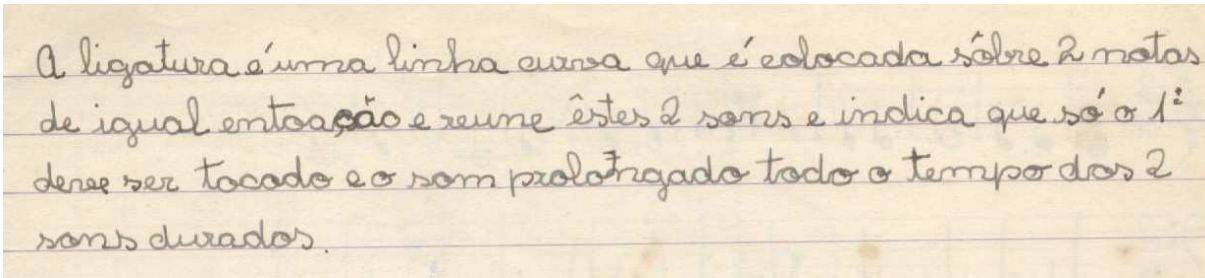 A ligatura é uma linha curva que é colocada sôbre 2 notas
de igual entoação e reune êstes 2 sons e indica que só o 1º
deve ser tocado e o som prolongado todo o tempo dos 2
sons durados.